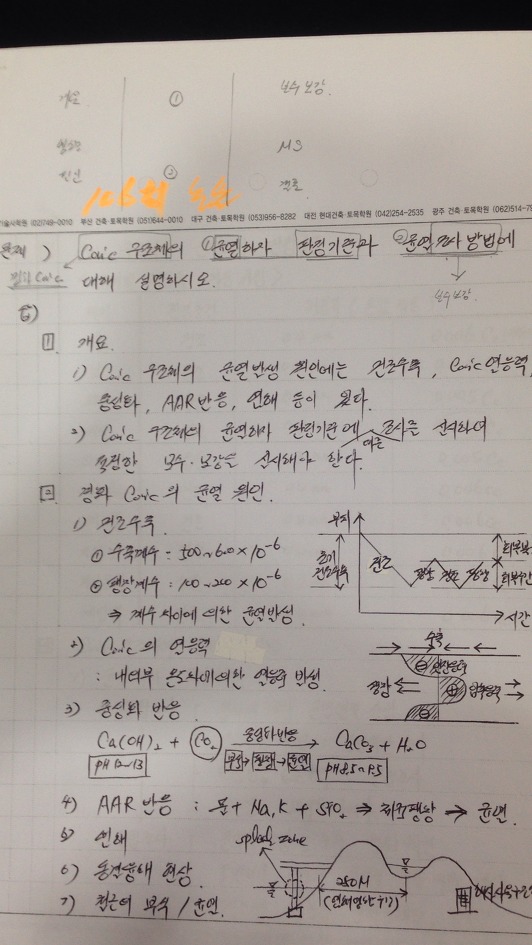 개요 ① 보수보강
MS
②
106회
기술사학원 (02)749-0010 부산 건축·토목학원 (051)644-0010 대구 건축·토목학원 (053)956-8282 대전 현대건축·토목학원 (042)254-2535 광주 건축·토목학원 (062)514-79
문제 ) Con'c 구조체의 ①균열하자 판정기준과 ②균열조사 방법에
경화 Con'c 대해 설명하시오.
보수보강
답)
1. 개요
1) Con'c 구조체의 균열발생 원인에는 건조수축, Con'c 온응력,
중성화, AAR반응, 염해 등이 있다.
2) Con'c 구조체의 균열하자 판정기준에 조사를 실시하여
적절한 보수·보강을 실시해야 한다.
2. 경화 Con'c의 균열 원인.
1) 건조수축
① 수축계수 : 500~600×10⁻⁶
② 팽창계수 : 100~200×10⁻⁶
⇒ 계수 차이에 의한 균열발생
부피
초기 건조수축
건조 팽창 건조 팽창
시간
2) Con'c의 온응력
: 내외부 온도차이에 의한 온응력 발생.
수축
팽창
인장응력
압축응력
3) 중성화 반응
Ca(OH)₂ + CO₂ 중성화반응 → CaCO₃ + H₂O
pH 12~13 부식→팽창→균열 pH 8.5~9.5
4) AAR 반응 : 물 + Na, K + SiO₂ ⇒ 체적팽창 → 균열.
5) 염해
splash zone
6) 동결융해 현상
250M
7) 철근의 부식 / 균열.